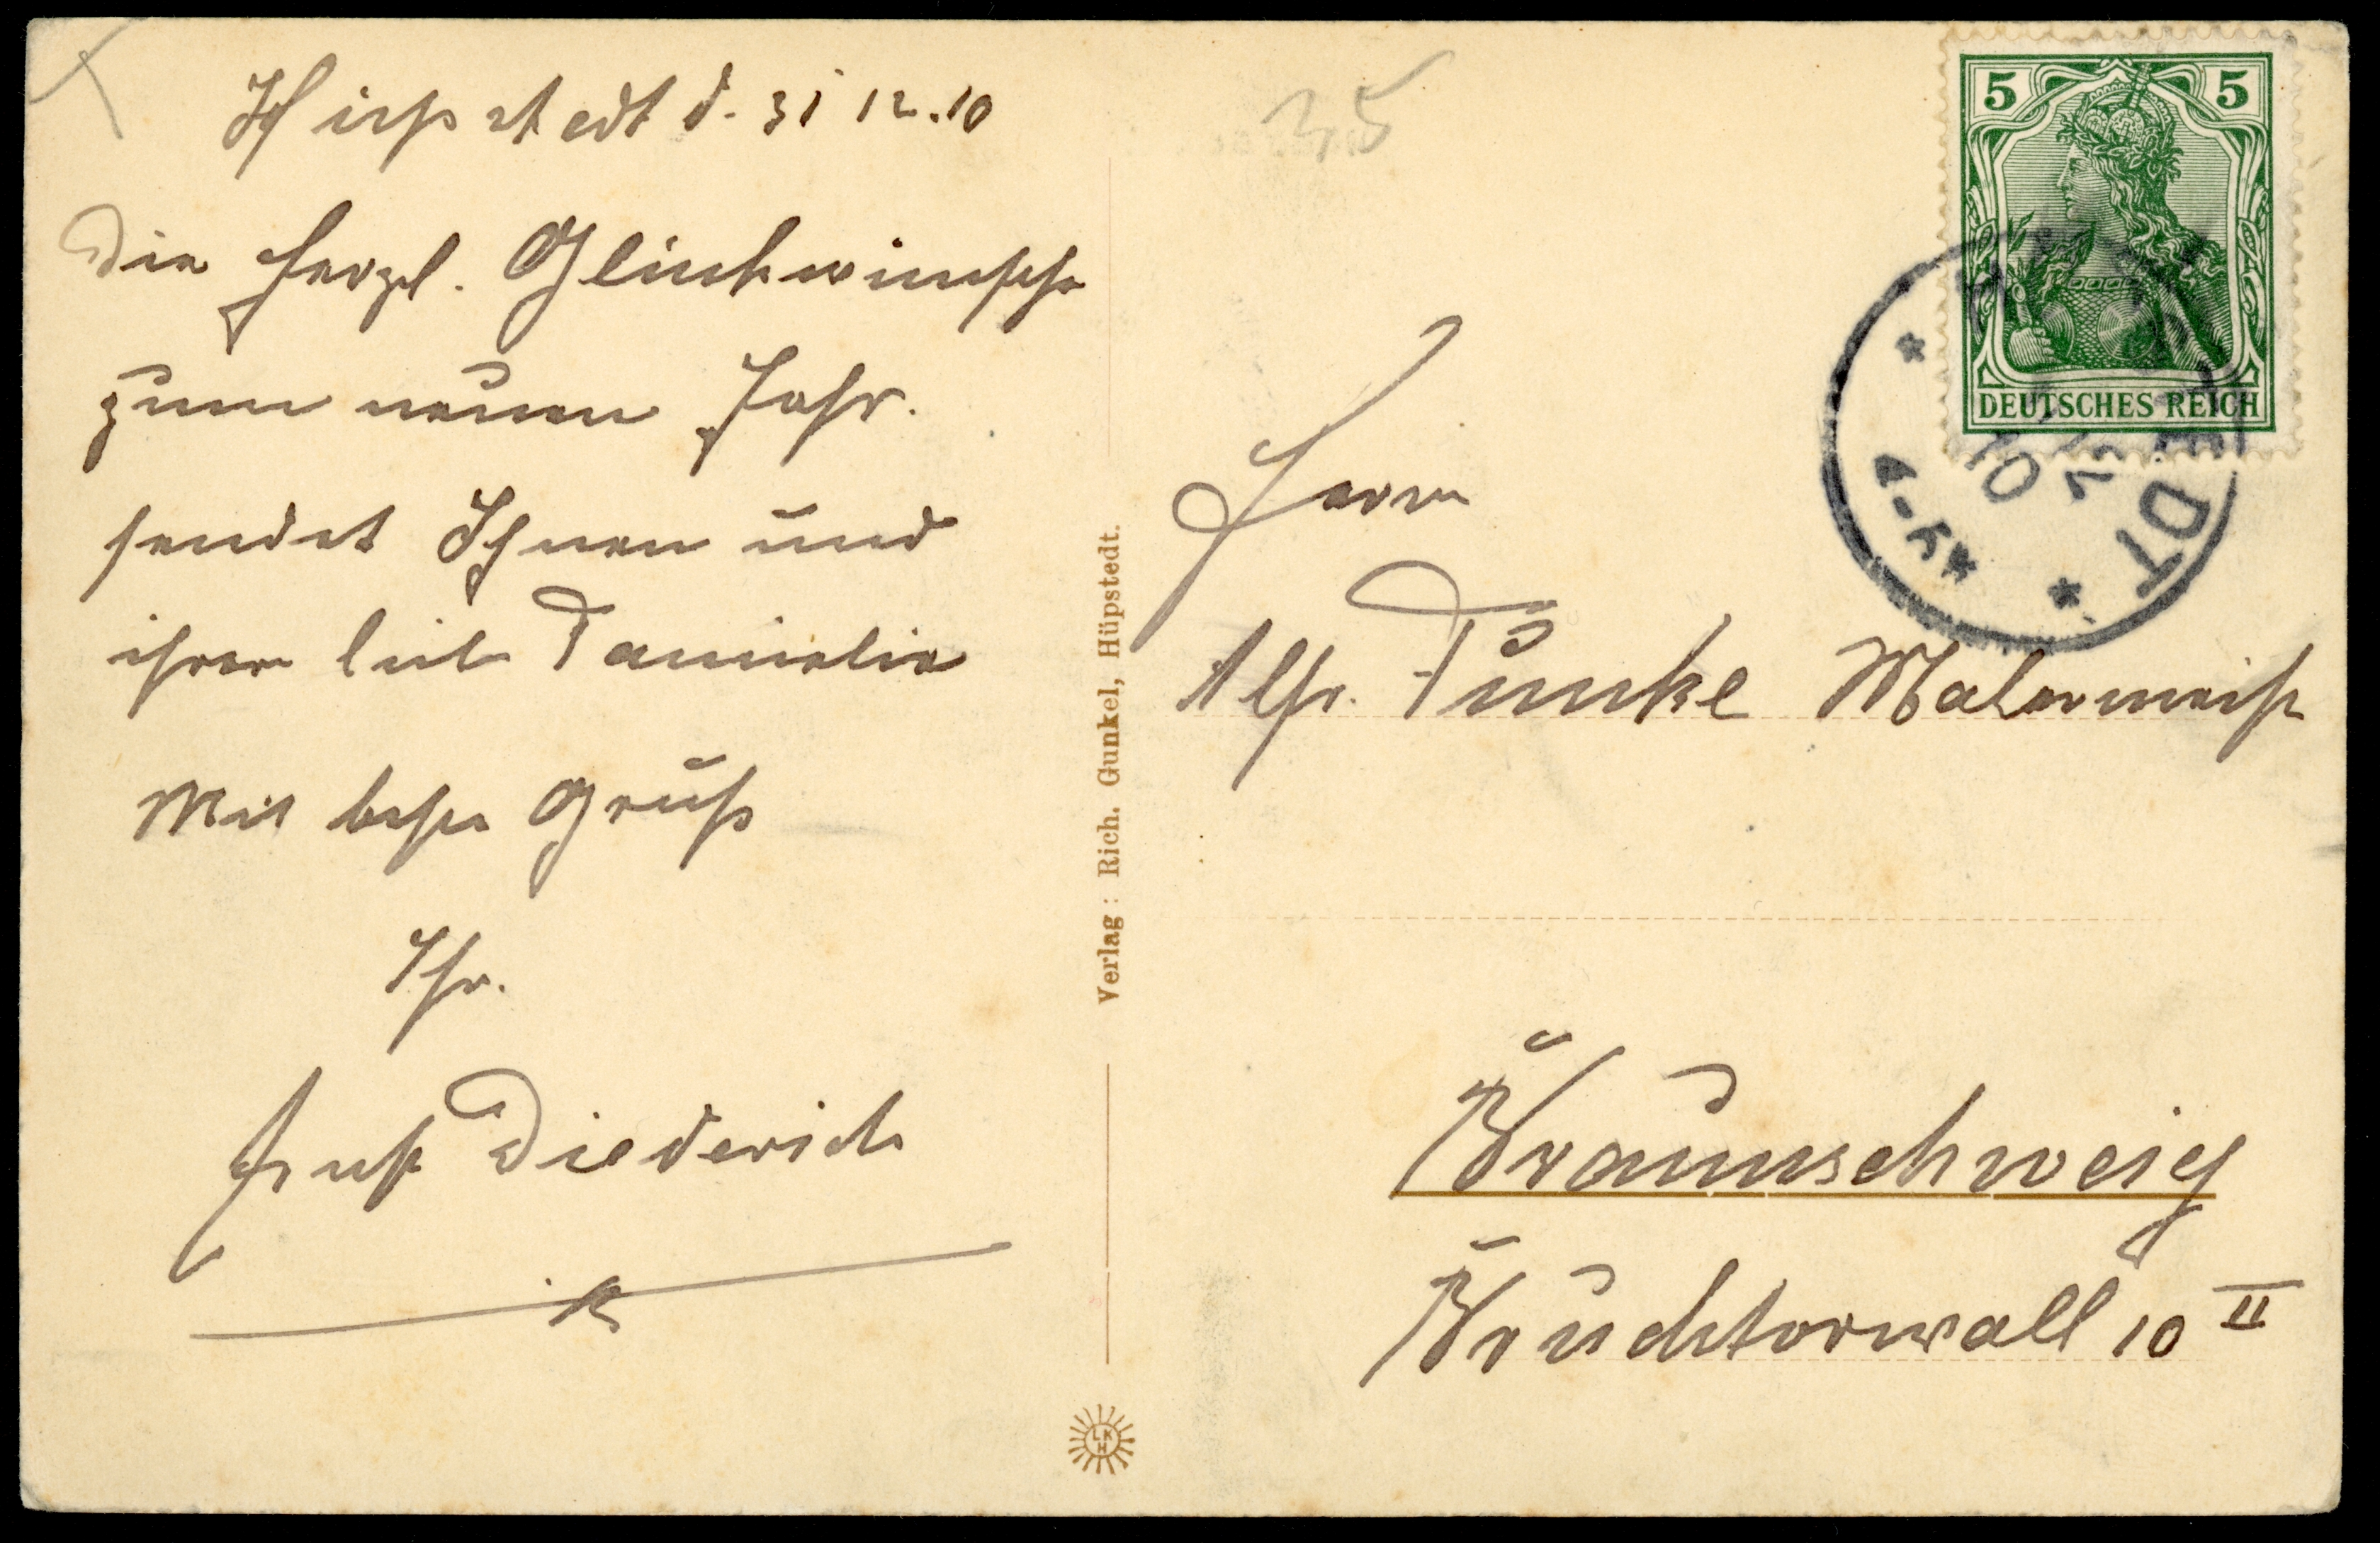 Hüpstedt d. 31 12.10
Die herzl. Glückwünsche
zum neuen Jahr.
sendet Ihnen und
ihrer lieb Famielie
Mit beste Gruß
Ihr.
Diederich
35
Herrn
Alfr. Funke Malermeist
Braunschweig
Bruchtorwall 10 II
Verlag: Rich. Gunkel, Hüpstedt.
LKH
5 5
DEUTSCHES REICH
EDT
10